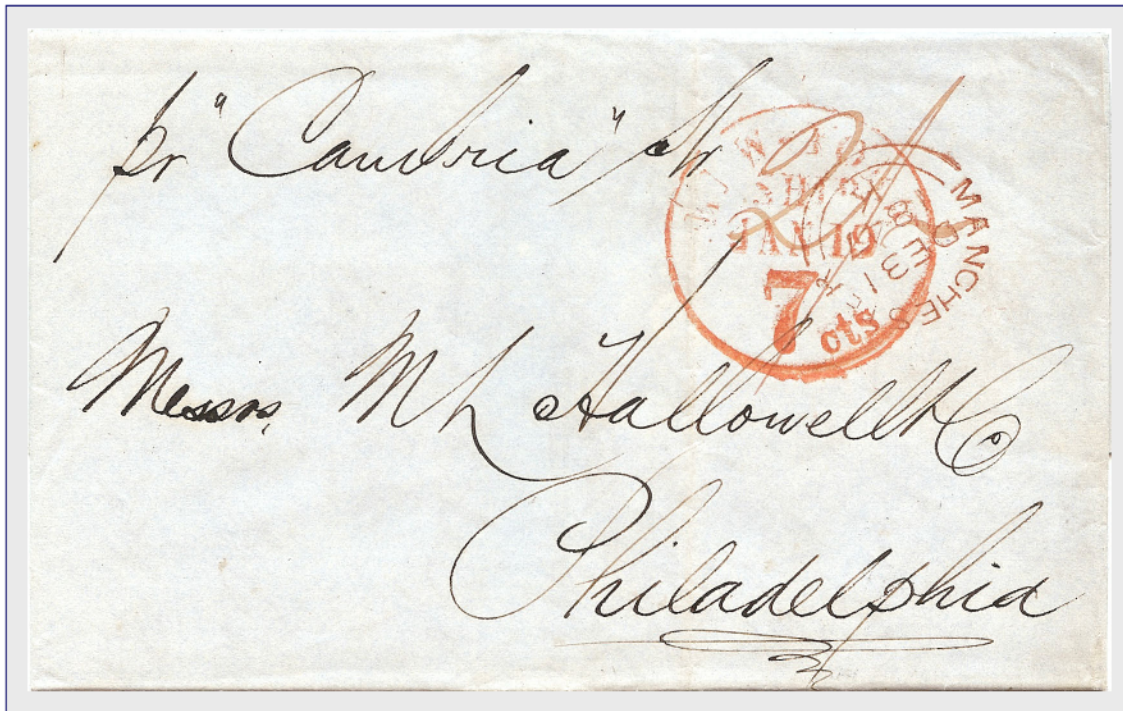 pr "Cambria" Str
NEW-YORK
SHIP
JAN 19
7
cts
MANCHES
Messrs, M L Hallowell & Co
Philadelphia